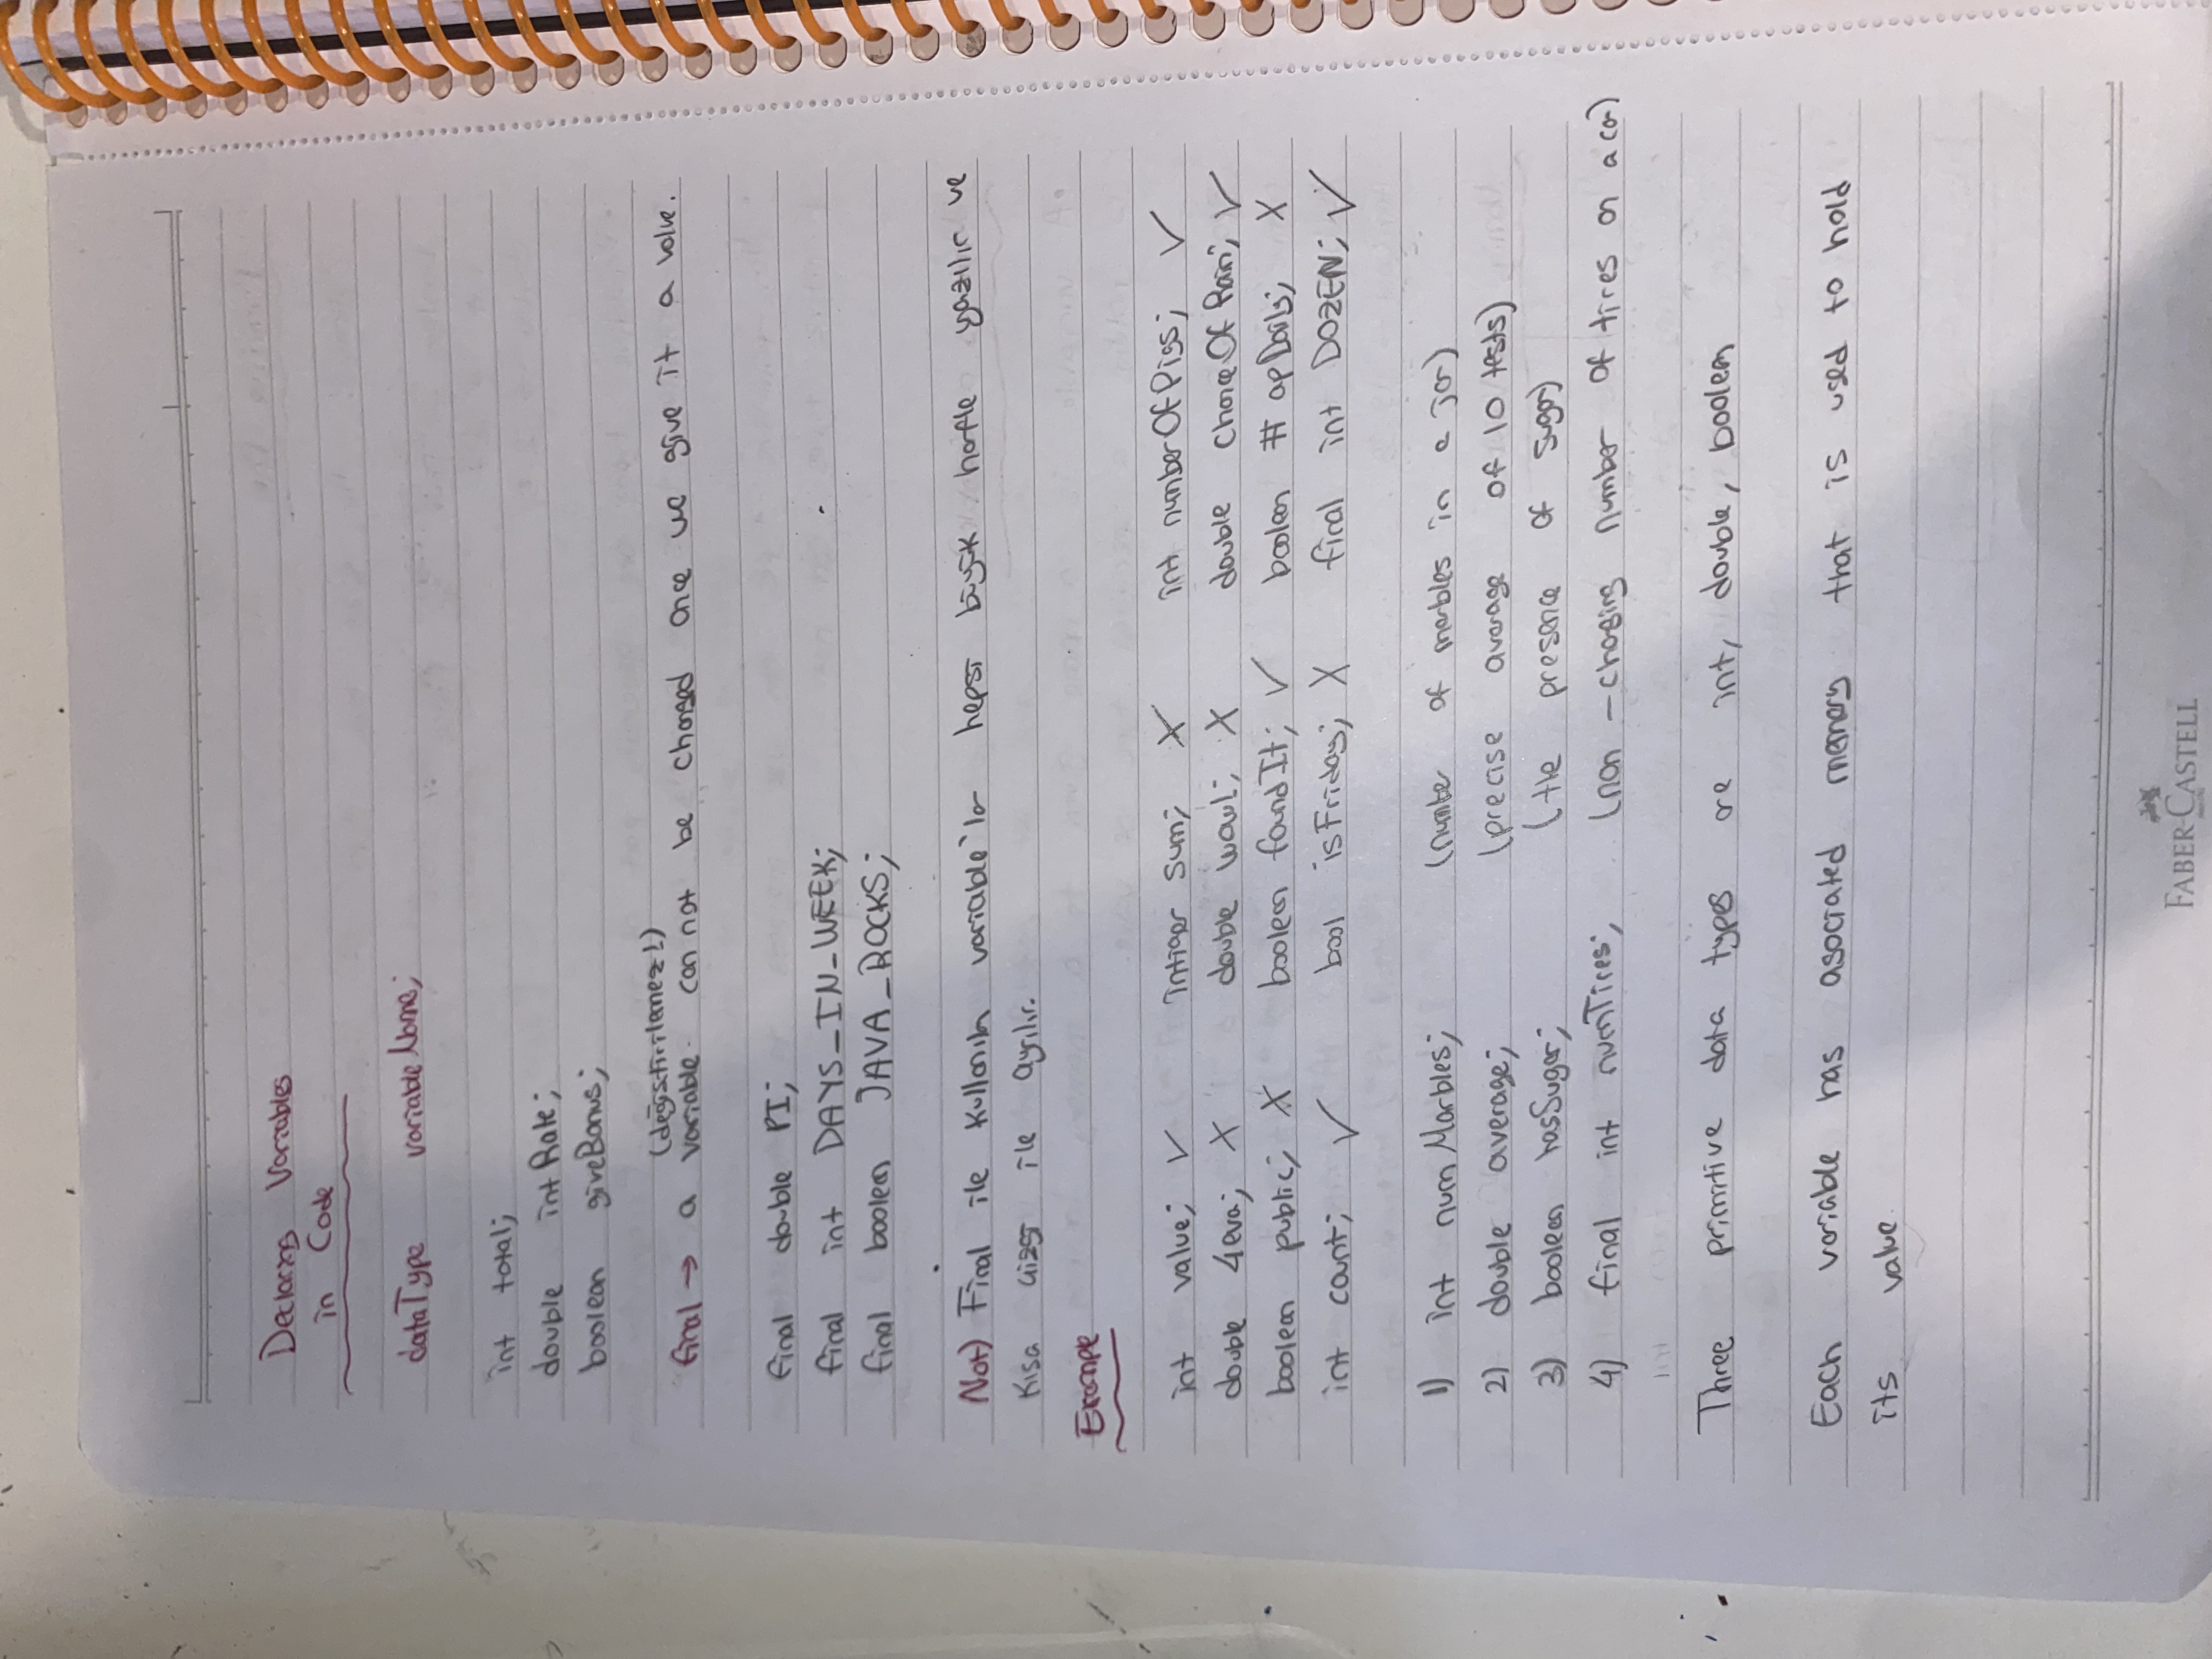 Declaring Variables
in Code
dataType variableName;
int total;
double intRate;
boolean giveBonus;
(değiştirilemez!)
final → a variable can not be changed once we give it a value.
final double PI;
final int DAYS_IN_WEEK;
final boolean JAVA_ROCKS;
Not) Final ile kullanılan variable'lar hepsi büyük harfle yazılır ve
kısa çizgi ile ayrılır.
Example
int value; ✓ intiger sum; X int numberOfPigs; ✓
double 4eva; X double wow!; X double chanceOfRain; ✓
boolean public; X boolean foundIt; ✓ boolean #apDaily; X
int count; ✓ bool isFriday; X final int DOZEN; ✓
1) int numMarbles; (number of marbles in a jar)
2) double average; (precise average of 10 tests)
3) boolean hasSugar; (the presence of sugar)
4) final int numTires; (non-changing number of tires on a car)
Three primitive data types are int, double, boolean
Each variable has asociated memory that is used to hold
its value.
FABER-CASTELL